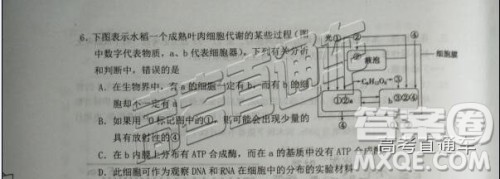 6.下图表示水稻一个成熟叶肉细胞代谢的某些过程(图
中数字代表物质，a、b代表细胞器)，下列有关分析
和判断中，错误的是
A．在生物界中，有a的细胞一定有b，而有b的细
胞却不一定有a
B．如果用
O标记图中的①，则可能会出现少量的
具有放射性的④
C．在b内膜上分布有ATP合成酶，而在a的基质中没有ATP合成酶
D．此细胞可作为观察DNA和RNA在细胞中的分布的实验材料
光
①
②
④
液泡
细胞壁
C₆H₁₂O₆
③
①②a
b③②④
高考直通车
答案圈
高考直通车